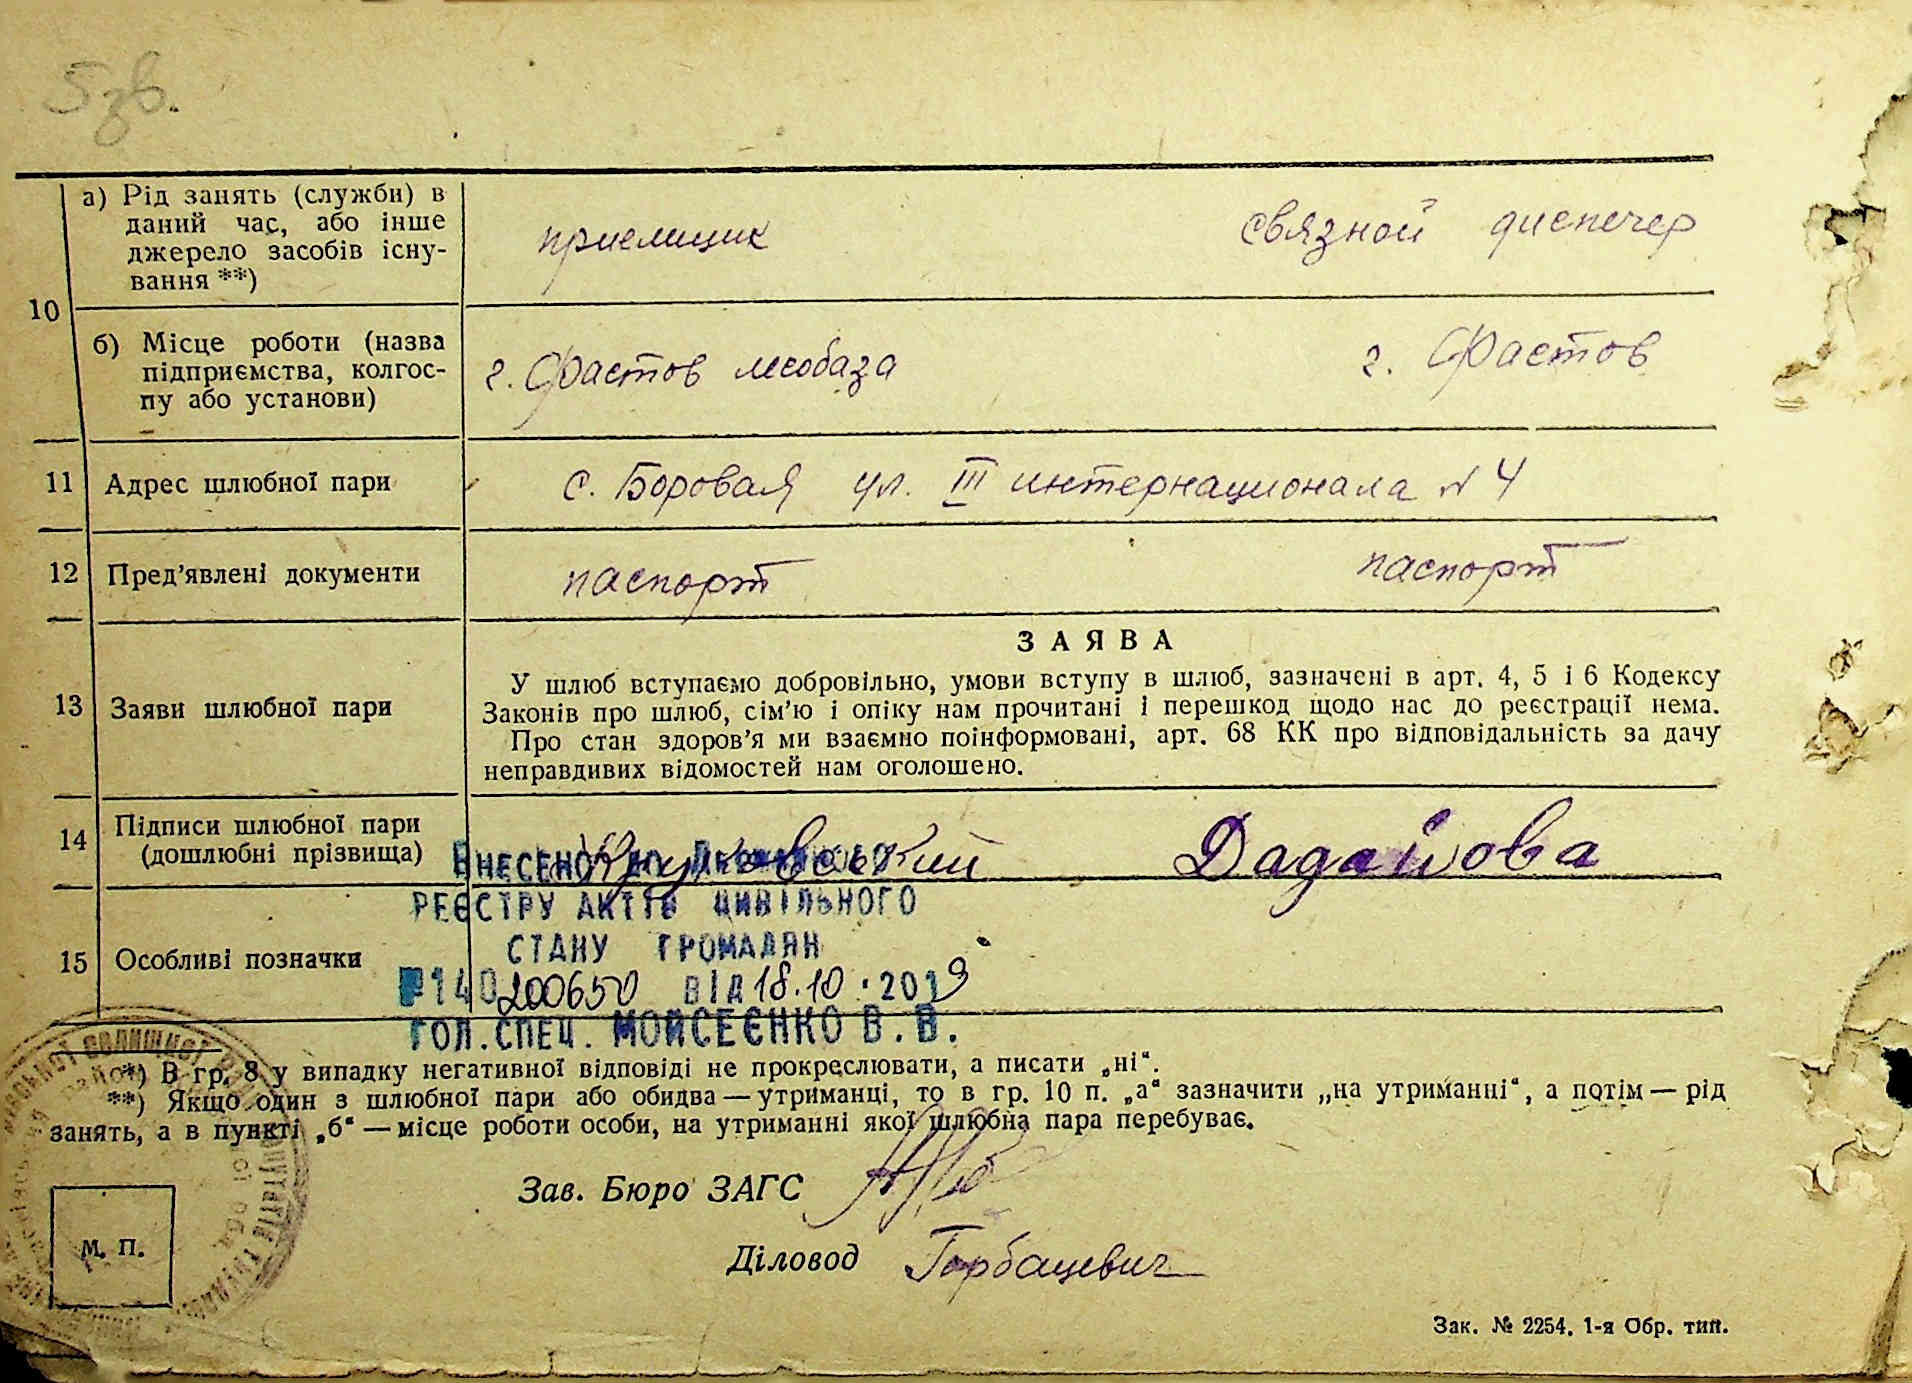 5 зв.
а) Рід занять (служби) в
даний час, або інше
джерело засобів існу-
вання **)
приемщик
связной диспечер
10
б) Місце роботи (назва
підприємства, колгос-
пу або установи)
г. Фастов лесобаза
г. Фастов
11 Адрес шлюбної пари
с. Боровая ул. III интернационала № 4
12 Пред'явлені документи
паспорт
паспорт
ЗАЯВА
У шлюб вступаємо добровільно, умови вступу в шлюб, зазначені в арт. 4, 5 і 6 Кодексу
13 Заяви шлюбної пари
Законів про шлюб, сім'ю і опіку нам прочитані і перешкод щодо нас до реєстрації нема.
Про стан здоров'я ми взаємно поінформовані, арт. 68 КК про відповідальність за дачу
неправдивих відомостей нам оголошено.
14 Підписи шлюбної пари
(дошлюбні прізвища)
Дадайова
ВНЕСЕНО ДО ДЕРЖАВНОГО
РЕЄСТРУ АКТІВ ЦИВІЛЬНОГО
СТАНУ ГРОМАДЯН
15 Особливі позначки
№140200650 ВІД 18.10.2019
ГОЛ.СПЕЦ. МОЙСЕЄНКО В.В.
*) В гр. 8 у випадку негативної відповіді не прокреслювати, а писати „ні“.
**) Якщо один з шлюбної пари або обидва — утриманці, то в гр. 10 п. „а“ зазначити „на утриманні“, а потім — рід
занять, а в пункті „б“ — місце роботи особи, на утриманні якої шлюбна пара перебуває.
Зав. Бюро ЗАГС
М. П.
Діловод Горбацевич
Зак. № 2254. 1-я Обр. тип.